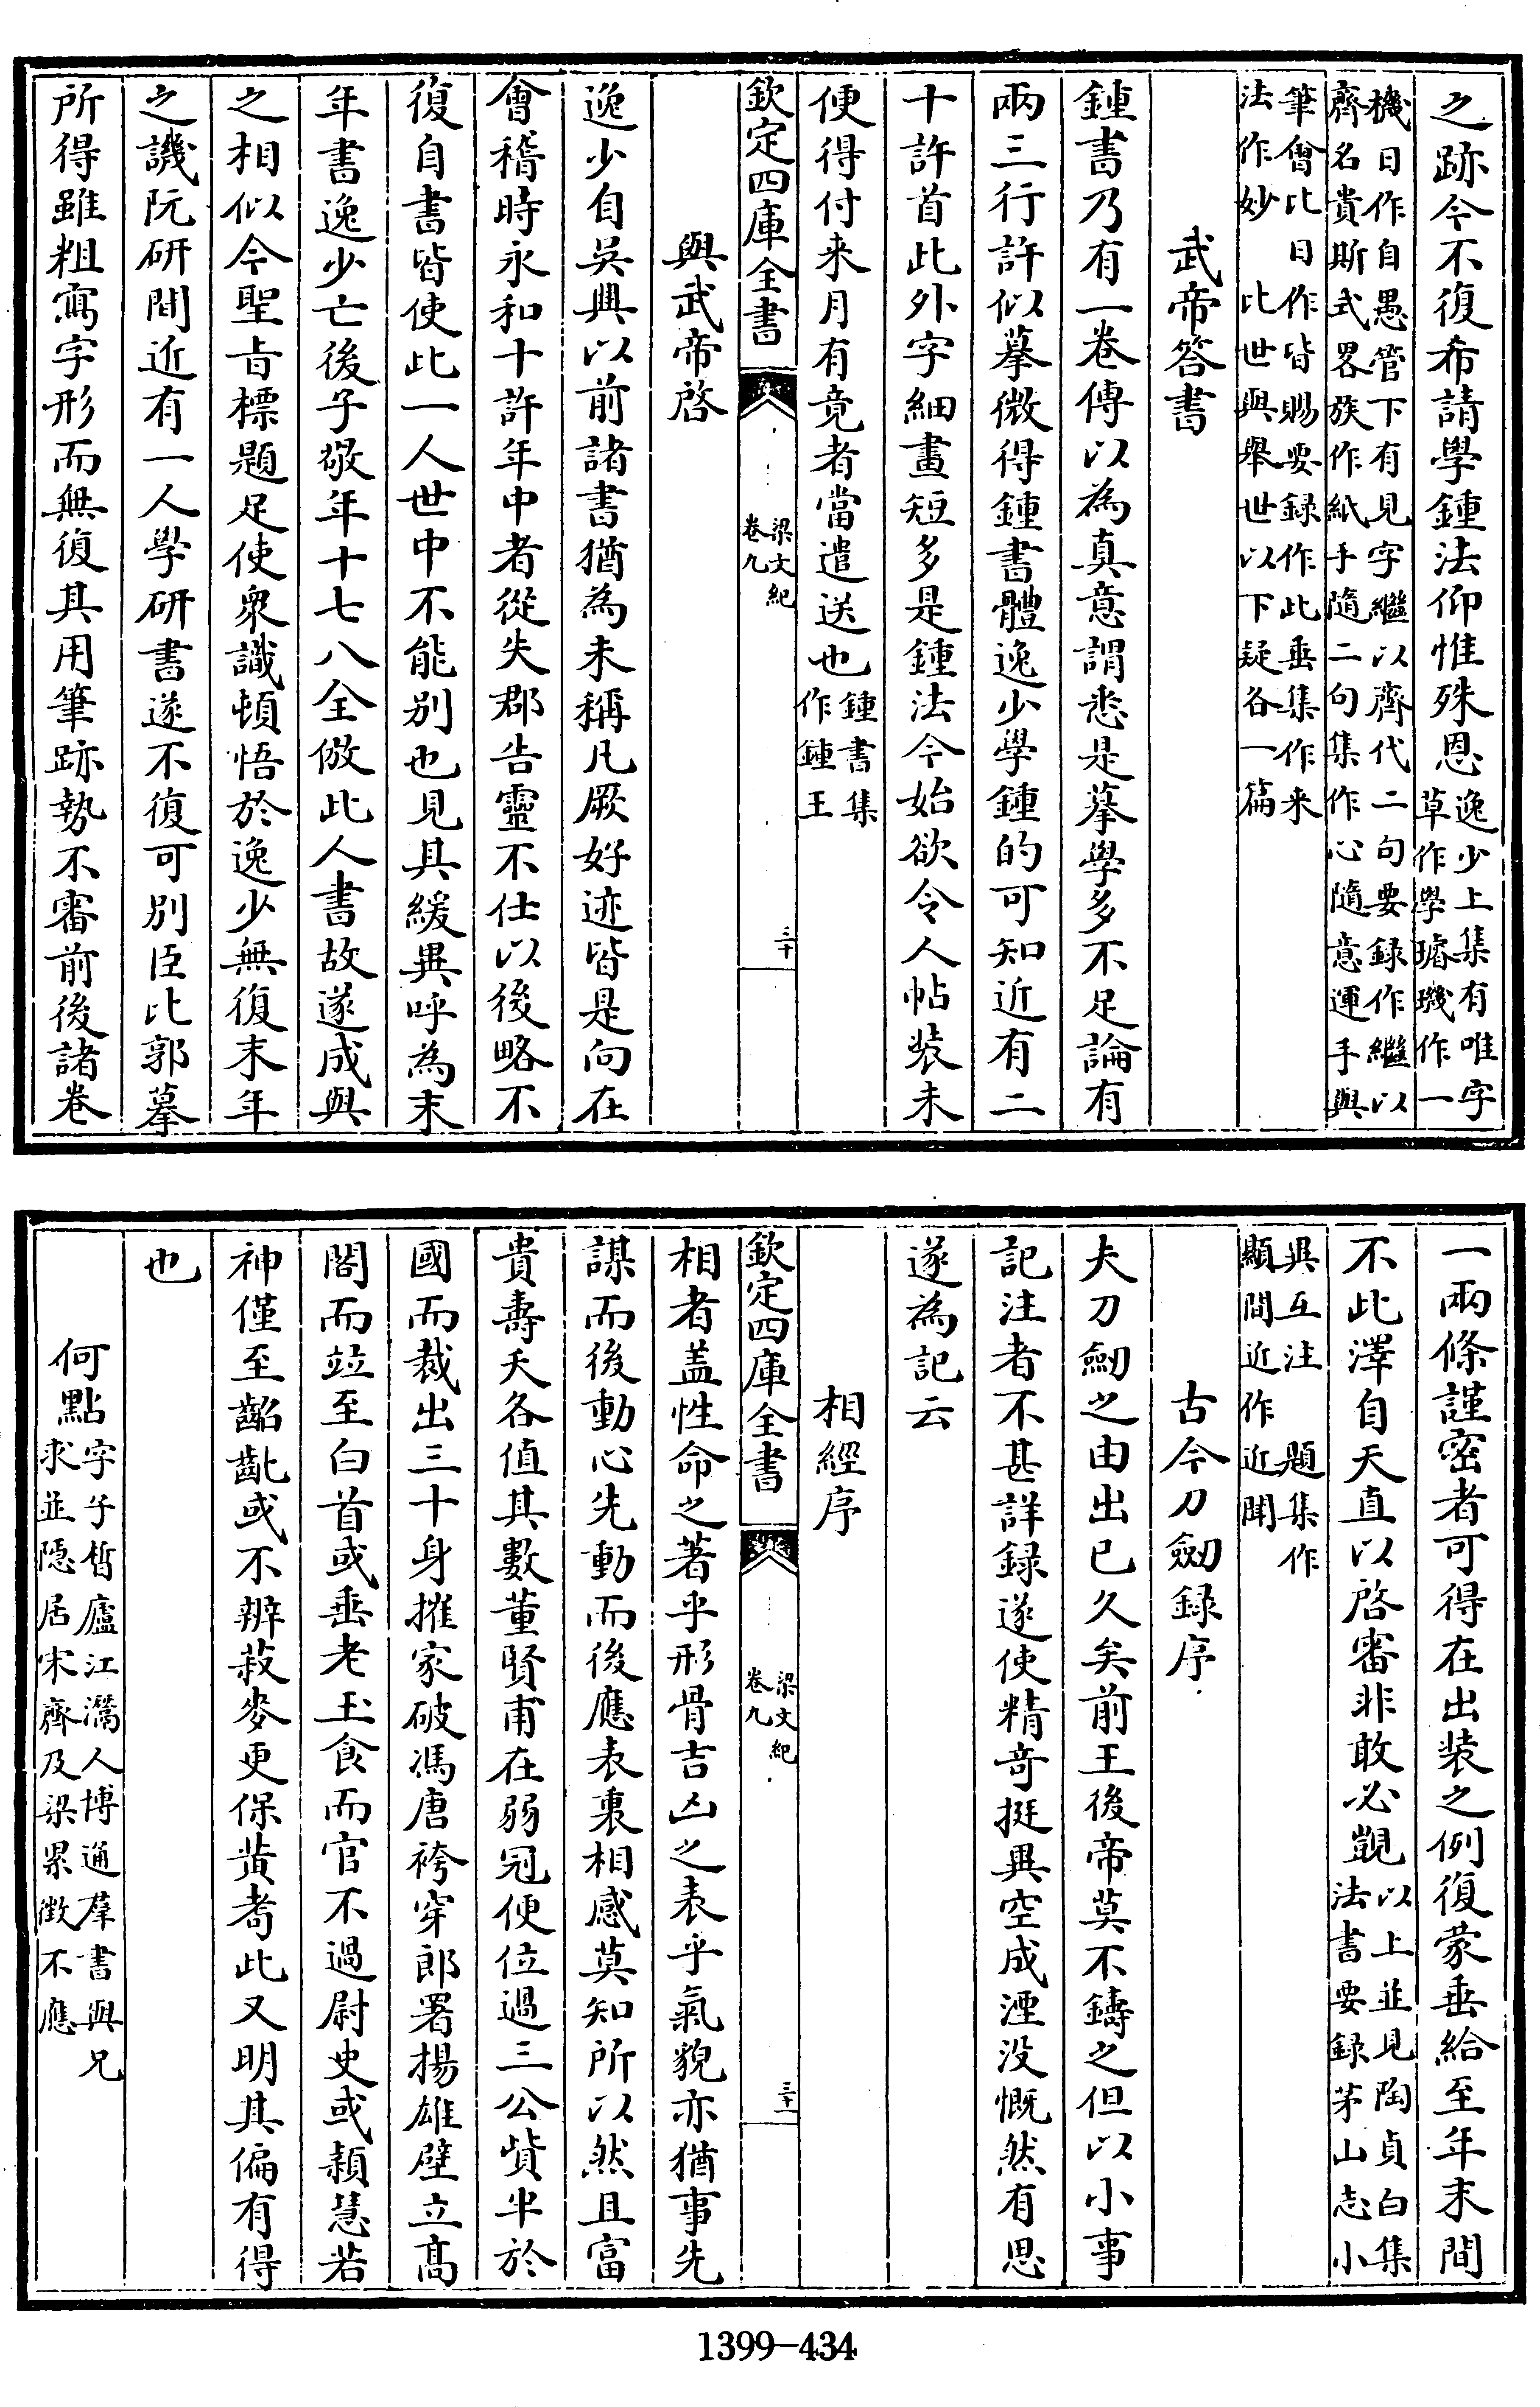 之跡今不復希請學鍾法仰惟殊恩逸少上集有唯字
草作學璿璣作一
機日作自愚管下有見字繼以齊代二句要録作繼以
齊名貴斯式畧族作紙手隨二句集作心隨意運手與
筆會比日作皆賜要録作此垂集作来
法作妙 比世與舉世以下疑各一篇
武帝答書
鍾書乃有一卷傳以為真意謂悉是摹學多不足論有
兩三行許似摹微得鍾書體逸少學鍾的可知近有二
十許首此外字細畫短多是鍾法今始欲令人帖裝未
便得付来月有竟者當遣送也鍾書集
作鍾王
欽定四庫全書
梁文紀
卷九
三十
與武帝啓
逸少自吳興以前諸書猶為未稱凡厥好迹皆是向在
會稽時永和十許年中者從失郡告靈不仕以後略不
復自書皆使此一人世中不能别也見其緩異呼為末
年書逸少亡後子敬年十七八全倣此人書故遂成與
之相似今聖旨標題足使衆識頓悟於逸少無復末年
之譏阮研間近有一人學研書遂不復可别臣比郭摹
所得雖粗寫字形而無復其用筆跡勢不審前後諸卷
一兩條謹密者可得在出裝之例復蒙垂給至年末間
不此澤自天直以啓審非敢必覬以上並見陶貞白集
法書要録茅山志小
異互注 題集作
顯間近作近聞
古今刀劒録序
夫刀劒之由出已久矣前王後帝莫不鑄之但以小事
記注者不甚詳録遂使精奇挺異空成湮没慨然有思
遂為記云
相經序
欽定四庫全書
梁文紀
卷九
三十一
相者盖性命之著乎形骨吉凶之表乎氣貌亦猶事先
謀而後動心先動而後應表裏相感莫知所以然且富
貴壽夭各值其數董賢甫在弱冠便位過三公貲半於
國而裁出三十身摧家破馮唐袴穿郎署揚雄壁立高
閣而竝至白首或垂老玉食而官不過尉史或穎慧若
神僅至齠齔或不辨菽麥更保黃耇此又明其偏有得
也
何點字子晳廬江灊人博通羣書與兄
求並隱居宋齊及梁累徵不應
1399-434